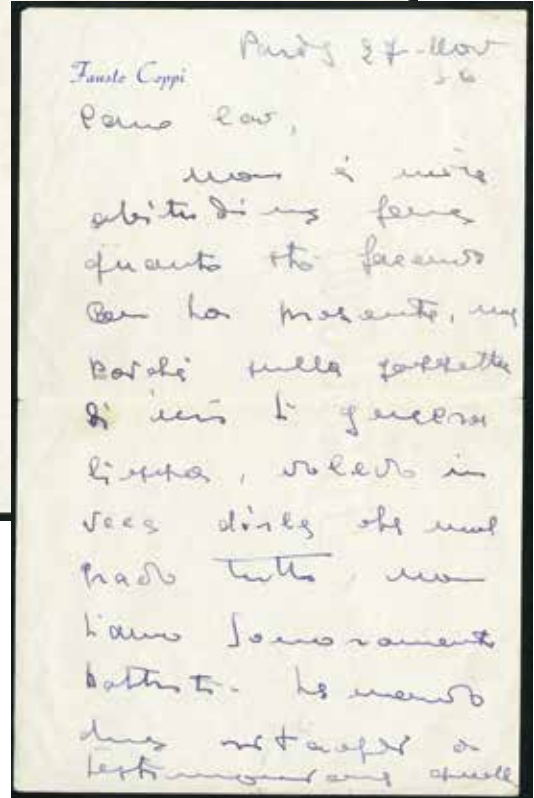 27-Nov
Fausto Coppi
Caro Cav,
non è mia
abitudine fare
quanto sto facendo
con la presente, ma
poiché sulla gazzetta
di ieri si
volevo in
vece dirle che mal
grado tutto, non
siamo sonoramente
battuti. Le mando
due ritagli a
testimonianza quell